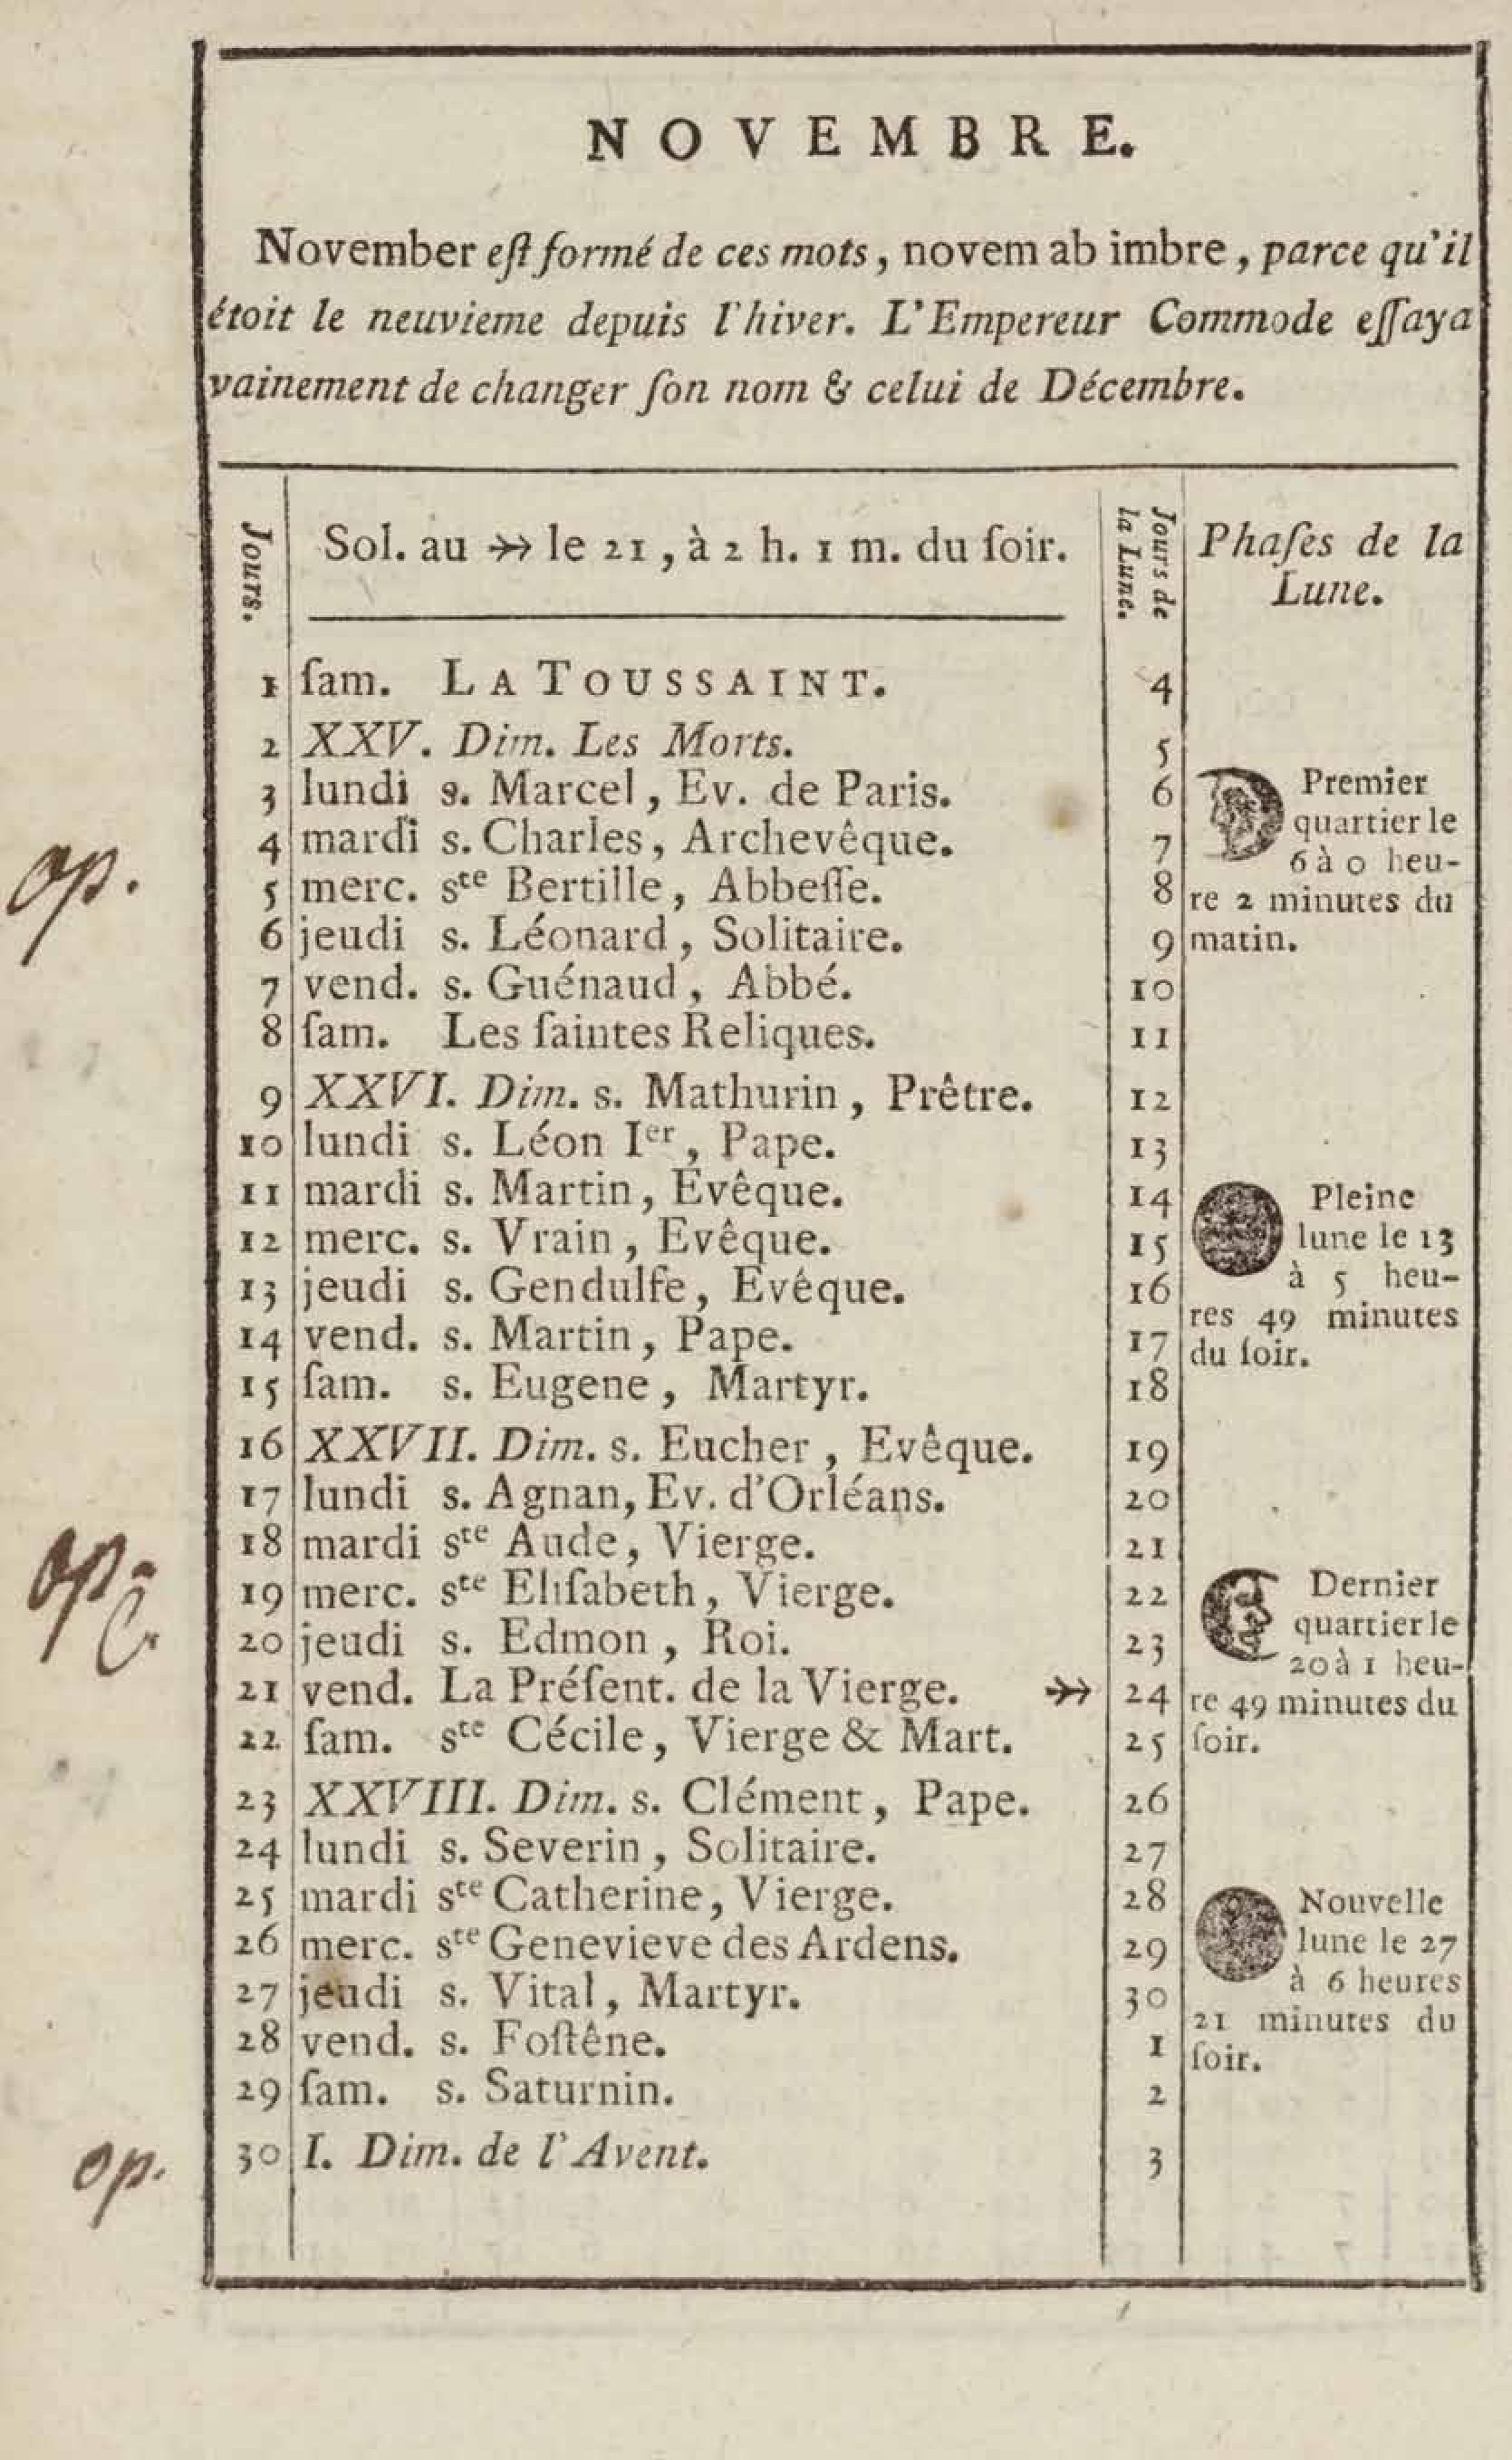 NOVEMBRE.
November eſt formé de ces mots, novem ab imbre, parce qu'il
étoit le neuvieme depuis l'hiver. L'Empereur Commode eſſaya
vainement de changer ſon nom & celui de Décembre.
Jours.
Sol. au ➳ le 21, à 2 h. 1 m. du ſoir.
Jours de
la Lune.
Phaſes de la
Lune.
1 ſam. LA TOUSSAINT. 4
2 XXV. Dim. Les Morts. 5
3 lundi s. Marcel, Ev. de Paris. 6
4 mardi s. Charles, Archevêque. 7
5 merc. ste Bertille, Abbeſſe. 8
6 jeudi s. Léonard, Solitaire. 9
7 vend. s. Guénaud, Abbé. 10
8 ſam. Les ſaintes Reliques. 11
9 XXVI. Dim. s. Mathurin, Prêtre. 12
10 lundi s. Léon Ier, Pape. 13
11 mardi s. Martin, Evêque. 14
12 merc. s. Vrain, Evêque. 15
13 jeudi s. Gendulfe, Evêque. 16
14 vend. s. Martin, Pape. 17
15 ſam. s. Eugene, Martyr. 18
16 XXVII. Dim. s. Eucher, Evêque. 19
17 lundi s. Agnan, Ev. d'Orléans. 20
18 mardi ste Aude, Vierge. 21
19 merc. ste Eliſabeth, Vierge. 22
20 jeudi s. Edmon, Roi. 23
21 vend. La Préſent. de la Vierge. ➳ 24
22 ſam. ste Cécile, Vierge & Mart. 25
23 XXVIII. Dim. s. Clément, Pape. 26
24 lundi s. Severin, Solitaire. 27
25 mardi ste Catherine, Vierge. 28
26 merc. ste Genevieve des Ardens. 29
27 jeudi s. Vital, Martyr. 30
28 vend. s. Foſtêne. 1
29 ſam. s. Saturnin. 2
30 I. Dim. de l'Avent. 3
Premier
quartier le
6 à 0 heu-
re 2 minutes du
matin.
Pleine
lune le 13
à 5 heu-
res 49 minutes
du ſoir.
Dernier
quartier le
20 à 1 heu-
re 49 minutes du
ſoir.
Nouvelle
lune le 27
à 6 heures
21 minutes du
ſoir.
op.
op.
op.